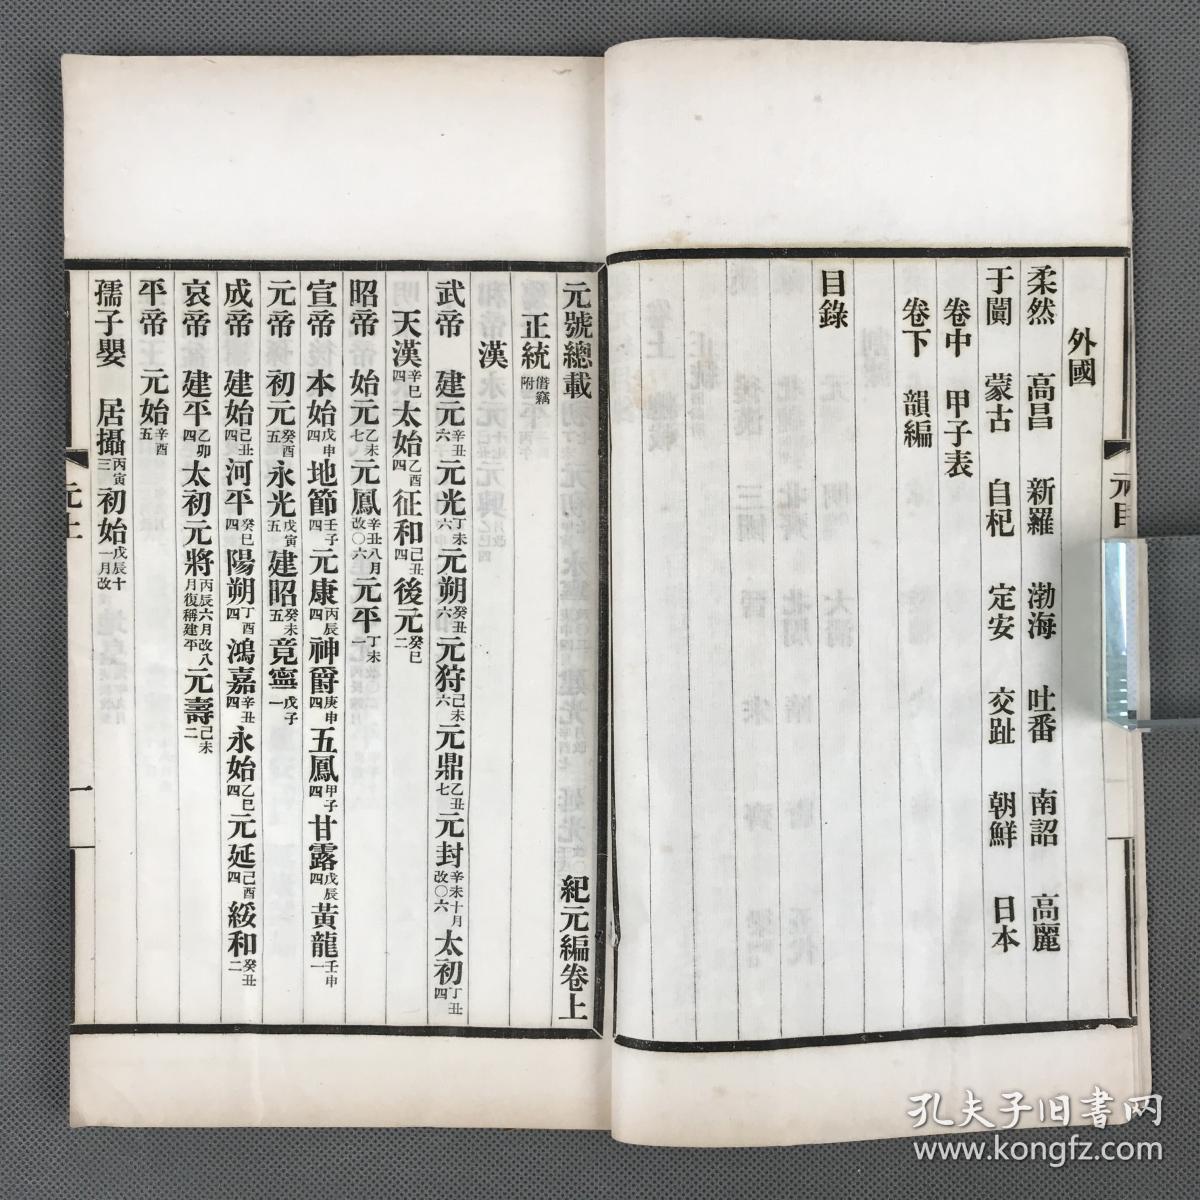 外國
柔然 高昌 新羅 渤海 吐番 南詔 高麗
于闐 蒙古 自杞 定安 交趾 朝鮮 日本
卷中 甲子表
卷下 韻編
目錄
元目
元號總載 紀元編卷上
正統僭竊附
漢
武帝 建元辛丑六元光丁未六元朔癸丑六元狩己未六元鼎乙丑七元封辛未十月改〇六太初丁丑四
天漢辛巳四太始乙酉四征和己丑四後元癸巳二
昭帝 始元乙未七元鳳辛丑八月改〇六元平丁未一
宣帝 本始戊申四地節壬子四元康丙辰四神爵庚申四五鳳甲子四甘露戊辰四黃龍壬申一
元帝 初元癸酉五永光戊寅五建昭癸未五竟寧戊子一
成帝 建始己丑四河平癸巳四陽朔丁酉四鴻嘉辛丑四永始乙巳四元延己酉四綏和癸丑二
哀帝 建平乙卯四太初元將丙辰六月改八月復稱建平元壽己未二
平帝 元始辛酉五
孺子嬰 居攝丙寅三初始戊辰十一月改
元上
一
孔夫子旧书网
www.kongfz.com